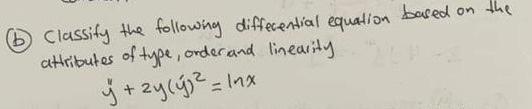 (b) Classify the following differential equation based on the
attributes of type, order and linearity
ÿ + 2y(ẏ)² = lnx